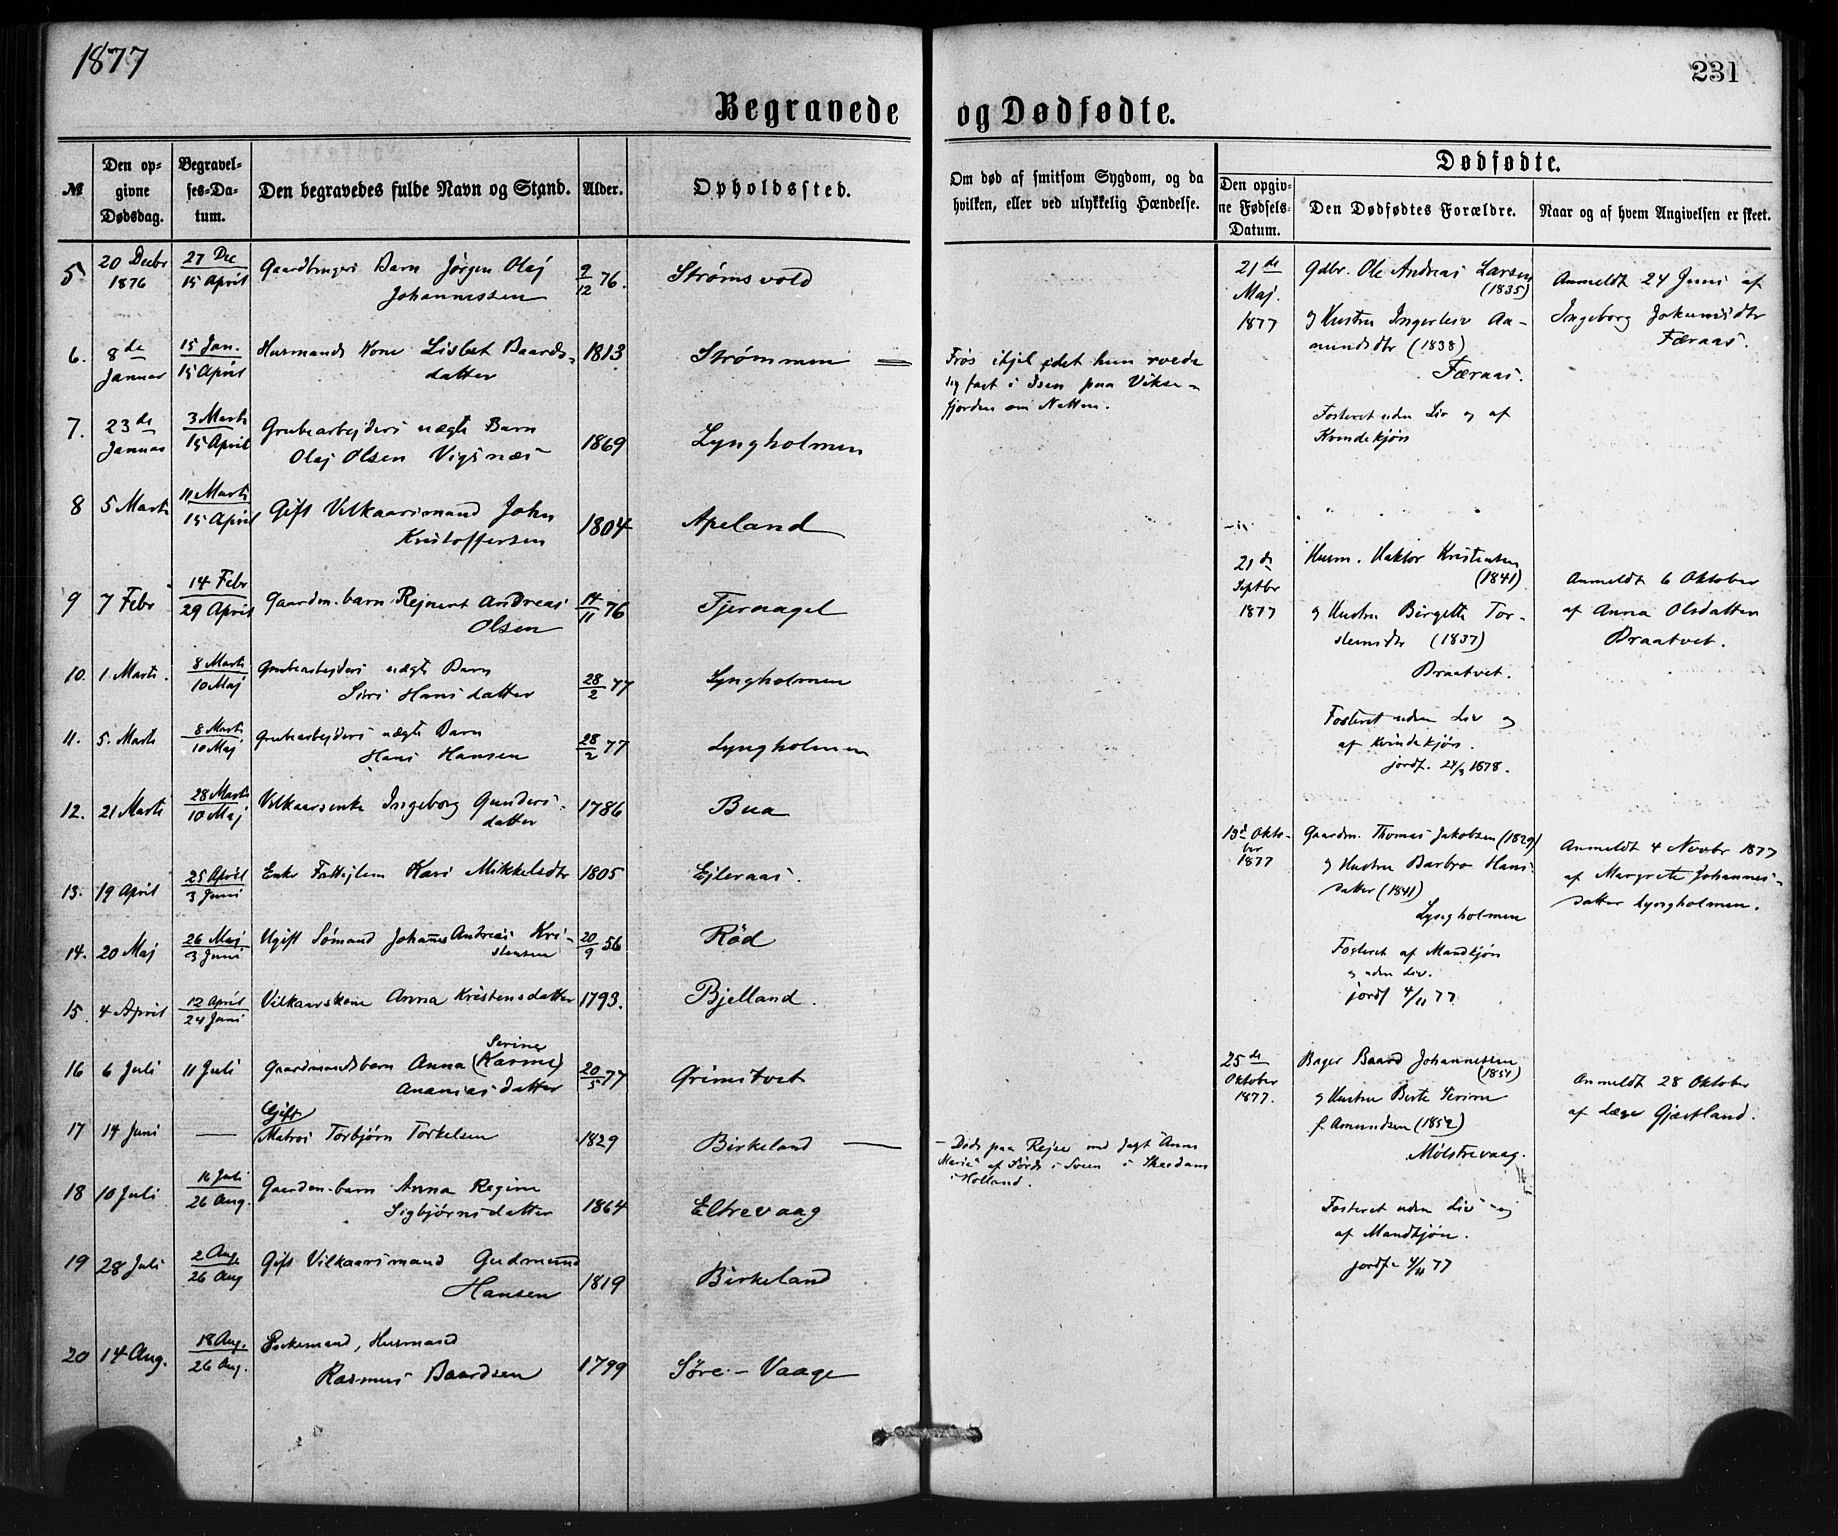 1877
231
Begravede og Dødfødte.
№
Den opgivne Dødsdag.
Begravelses-Datum.
Den begravedes fulde Navn og Stand.
Alder.
Opholdssted.
Om død af smitsom Sygdom, og da hvilken, eller ved ulykkelig Hændelse.
Dødfødte.
Den opgivne Fødsels-Datum.
Den Dødfødtes Forældre.
Naar og af hvem Angivelsen er skeet.
5 20 Decbr 27 Dec Gaardbrugers Barn Jörgen Olaj 9/12 76. Strømsvold
1876 15 April Johannessen
6. 8de 15 Jan. Husmands Kone Lisbet Baards- 1813 Strømmen Frøs ihjel idet hun
Januar 15 April datter fast i Isen paa Vikse-
fjorden om Natten.
7. 23de 3 Marts Grubearbejders uægte Barn 1869 Lyngholmen
Januar 15 April Olaj Olsen Vigsnæs
8 5 Marts 11 Marts Gift Vilkaarsmand John 1804 Apeland
15 April Kristoffersen
9 7 Febr 14 Febr Gaardm. barn Rejnert Andreas 14/11 76 Tjernagel
29 April Olsen
10. 1 Marts. 8 Marts Grubearbejders uægte Barn 28/2 77 Lyngholmen
10 Maj Siri Hansdatter
11. 5. Marts 8 Marts Grubearbejders uægte Barn 28/2 77 Lyngholmen
10 Maj Hans Hansen
12. 21 Marts 28 Marts Vilkaarsenke Ingeborg Gunders- 1786 Bua
10 Maj datter
13. 19 April 25 April Enke Fattiglem Kari Mikkelsdtr 1805 Ejleraas.
3 Juni
14. 20 Maj 26 Maj Ugift Sømand Johannes Andreas Kri- 20/9 56 Rød
3 Juni stensen
15. 4 April 12 April Vilkaarskone Anna Kristensdatter 1793. Bjelland.
24 Juni
Serine
16 6 Juli 11 Juli Gaardmandsbarn Anna (Karine) 20/5 77 Grimstvet
Ananiasdatter
Gift
17 14 Juni — Matros Torbjørn Torkelsen 1829 Birkeland — Døde paa Rejse med Jagt "Anne
Marie" af i Sveen i Skiedam
i Holland.
18 10 Juli 16 Juli Gaardm. barn Anna Regine 1864 Eltrevaag
26 Aug. Sigbjørnsdatter
19 28 Juli 2 Aug Gift Vilkaarsmand Gudmund 1819 Birkeland
26 Aug Hansen
20 14 Aug. 18 Aug. Enkemand, Husmand 1799 Søre-Vaage
26 Aug. Rasmus Baardsen
21de Gdbr. Ole Andreas Larsen Anmeldt 24 Juni af
Maj. (1835) Ingeborg
1877 og Hustru Ingerleiv Aa- Færaas.
mundsdtr (1838)
Færaas.
Fosteret uden Liv og af
Kvindekjøn
21de Husm. Haktor Kristensen Anmeldt 6 Oktober
Septbr (1841) af Anna Olsdatter
1877 og Hustru Birgette Tor- Braatvet.
steinsdtr (1837)
Braatvet.
Fosteret uden Liv og
af Kvindekjøn.
jordf. 24/3 1878.
13de Okto- Gaardm. Thomas Jakobsen (1829) Anmeldt 4 Novbr 1877
ber og Hustru Barbro Hans- af Margrete Johannes-
1877 datter (1841) datter Lyngholmen.
Lyngholmen
Fosteret af Mandkjøn
og uden Liv.
jordf 4/11 77
25de Bager Baard Johannessen Anmeldt 28 Oktober
Oktober (1854) af Læge Gjestland.
1877. og Hustru Berte Serine
f. Amundsen (1852)
Mølstrevaag.
Fosteret uden Liv og
af Mandkjøn.
jordf. 4/11 77